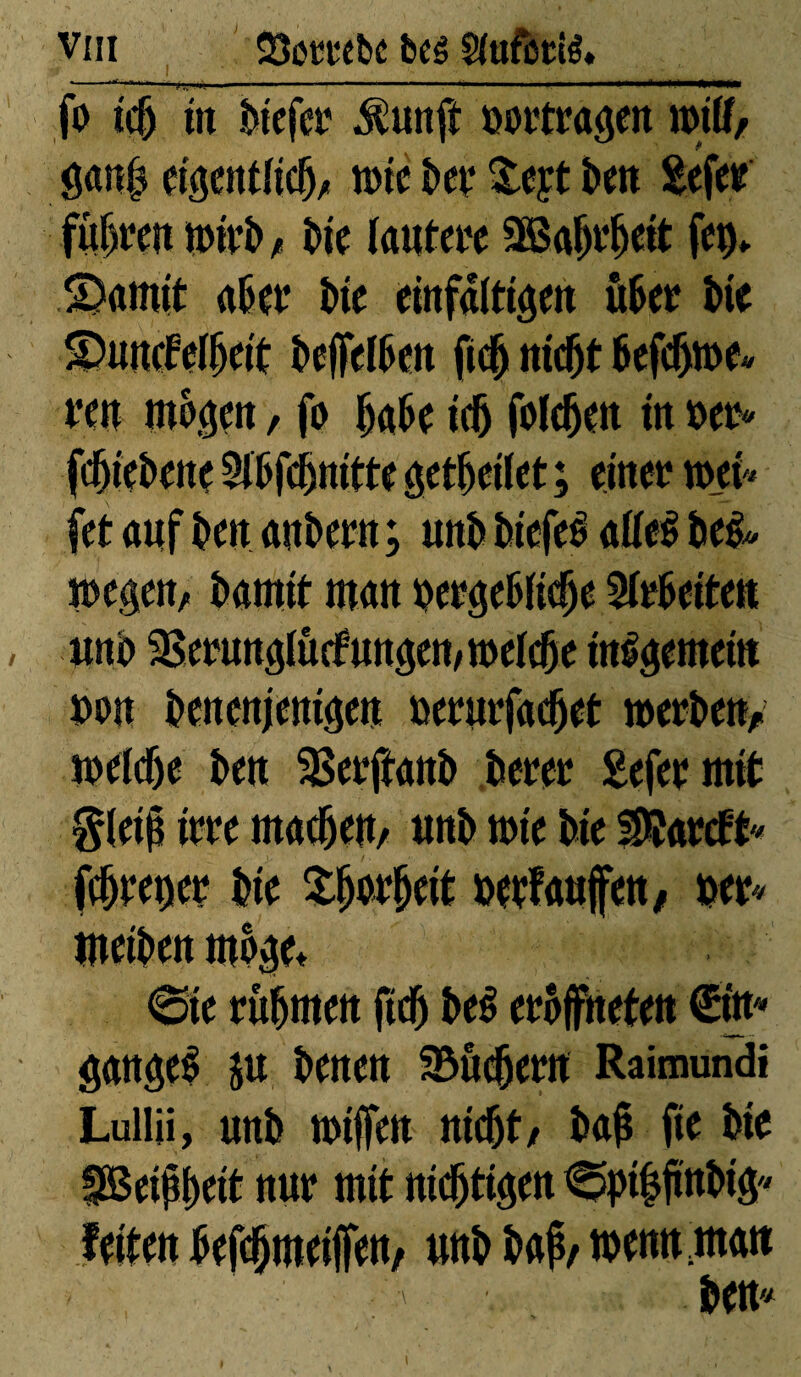 VIII Vorrede des Auforis.
so ich in dieser Kunst vortragen will,
gantz eigentlich, wie der Text den Leser
führen wird, die lautere Wahrheit sey.
Damit aber die einfältigen über die
Dunckelheit desselben sich nicht beschwe-
ren mögen, so habe ich solchen in ver-
schiedene Abschnitte getheilet; einer wei-
set auf den andern; und dieses alles des-
wegen, damit man vergebliche Arbeiten
und Verunglückungen, welche insgemein
von denenjenigen verursachet werden,
welche den Verstand derer Leser mit
Fleiß irre machen, und wie die Marckt-
schreyer die Thorheit verkauffen, ver-
meiden möge.
Sie rühmen sich des eröffneten Ein-
ganges zu denen Büchern Raimundi
Lullii, und wissen nicht, daß sie die
Weißheit nur mit nichtigen Spitzfindig-
keiten beschmeissen, und daß, wenn man
den-